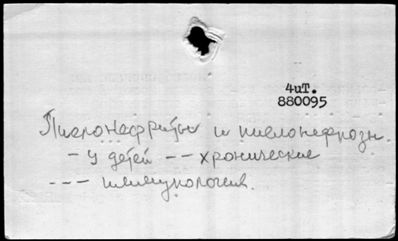 4иТ.
880095
Пиелонефриты и пиелонефрозы.
- у детей -- хронические
--- иммунология.